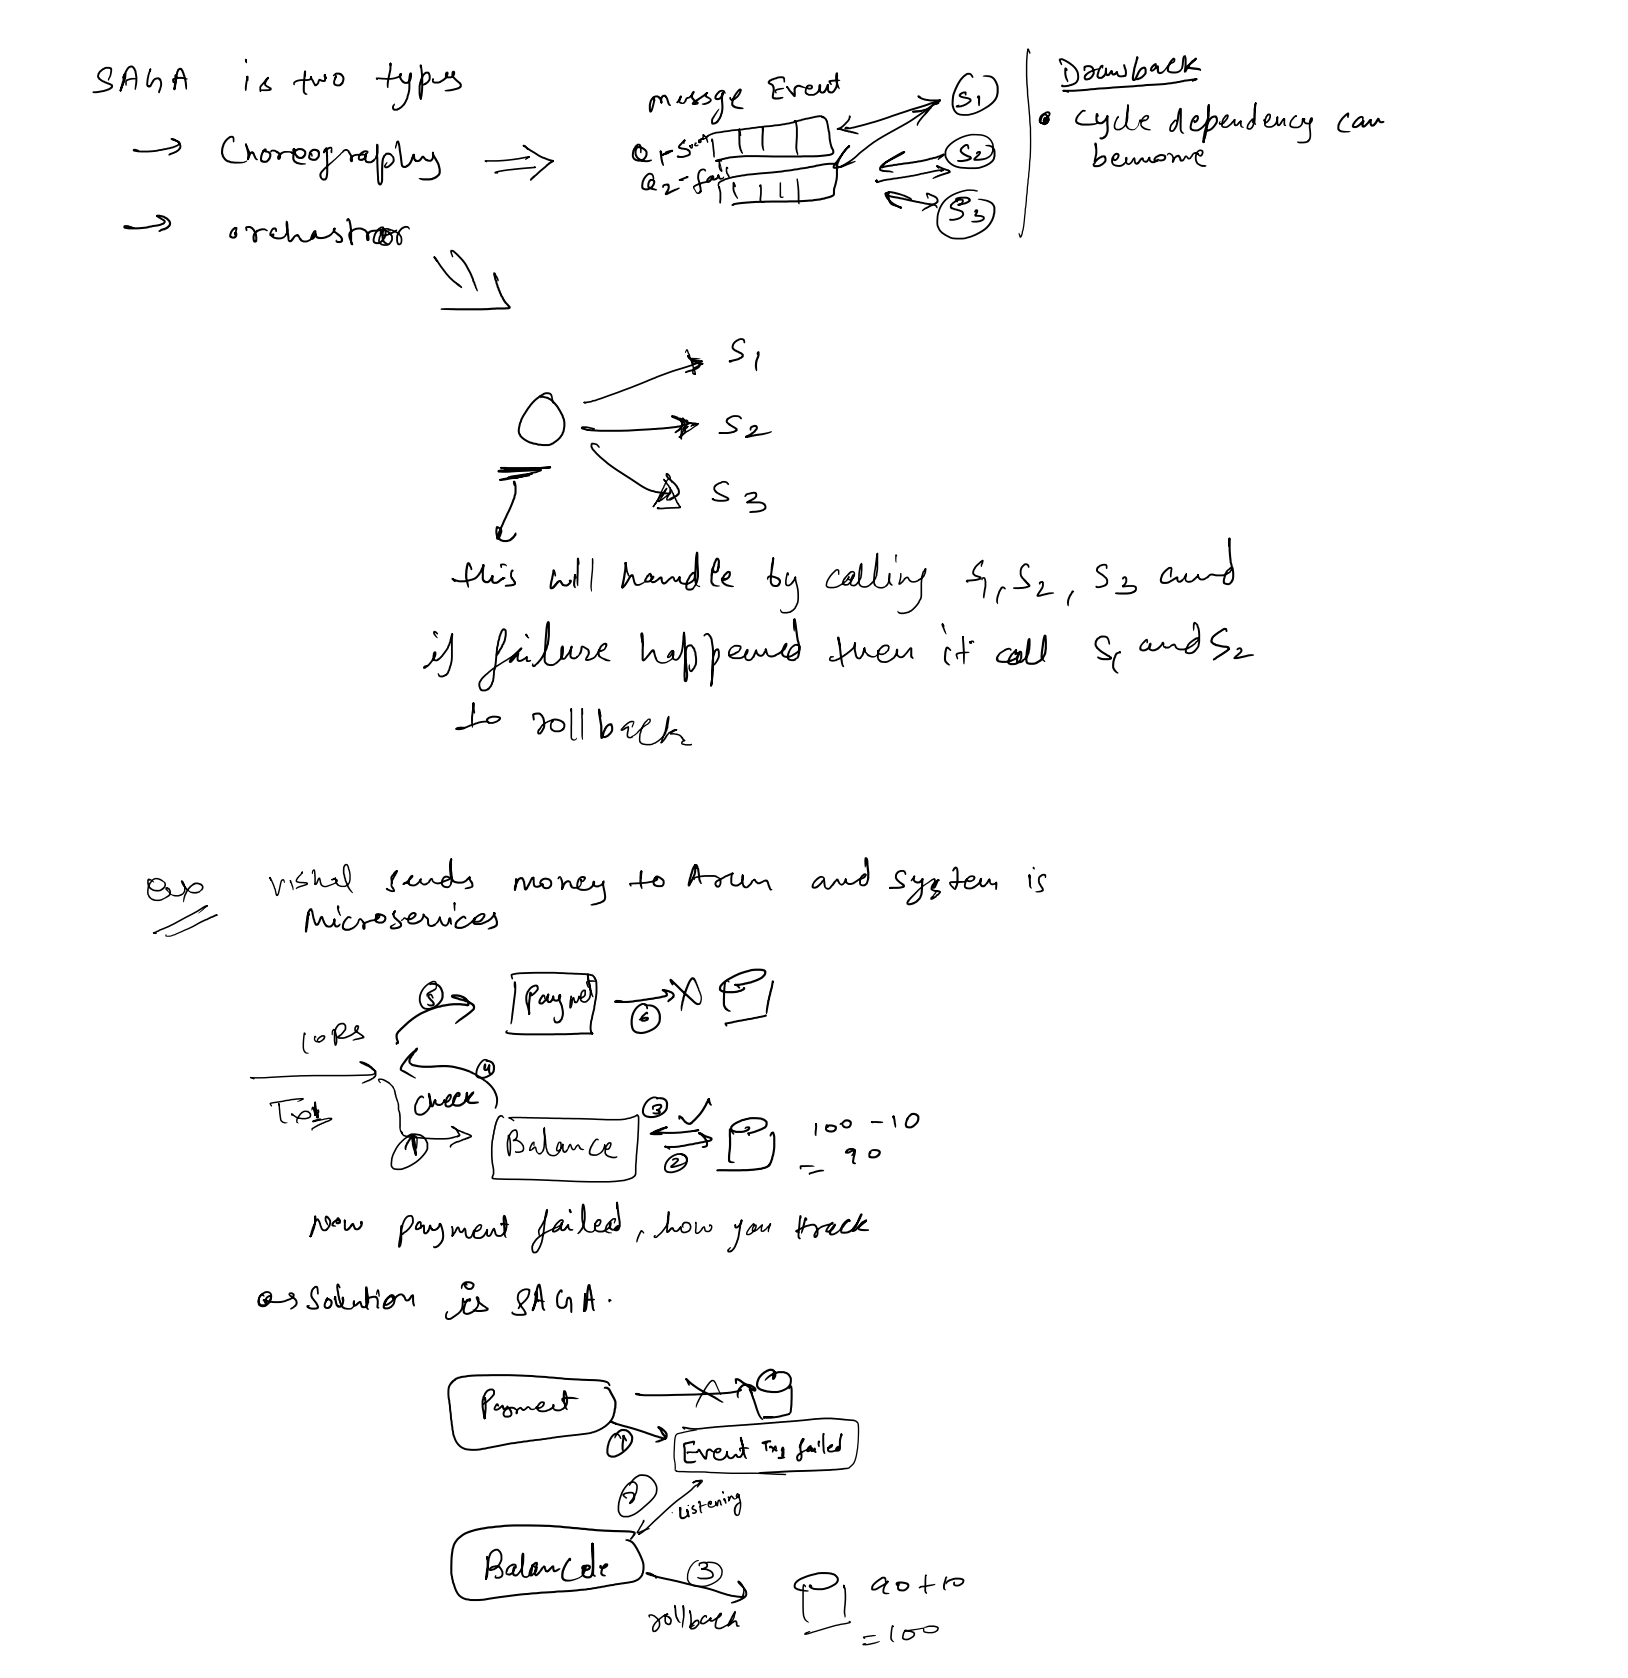 SAGA is two types
→ Choreography ⇒
→ orchastror
messge Event
Q1-Succ
Q2-fail
S1
S2
S3
Drawback
• cycle dependency can
S1
S2
S3
this will handle by calling S1, S2, S3 and
if failure happened then it call S1 and S2
to rollback
Exp vishal sends money to Arun and system is
Microservices
10RS
Tx1
5
Paymet
6
4
check
1
Balance
3
2
100 - 10
= 90
Now payment failed, how you track
→ Solution is SAGA.
Payment
1
Event Tx1 failed
2
Listening
3
rollback
90+10
=100